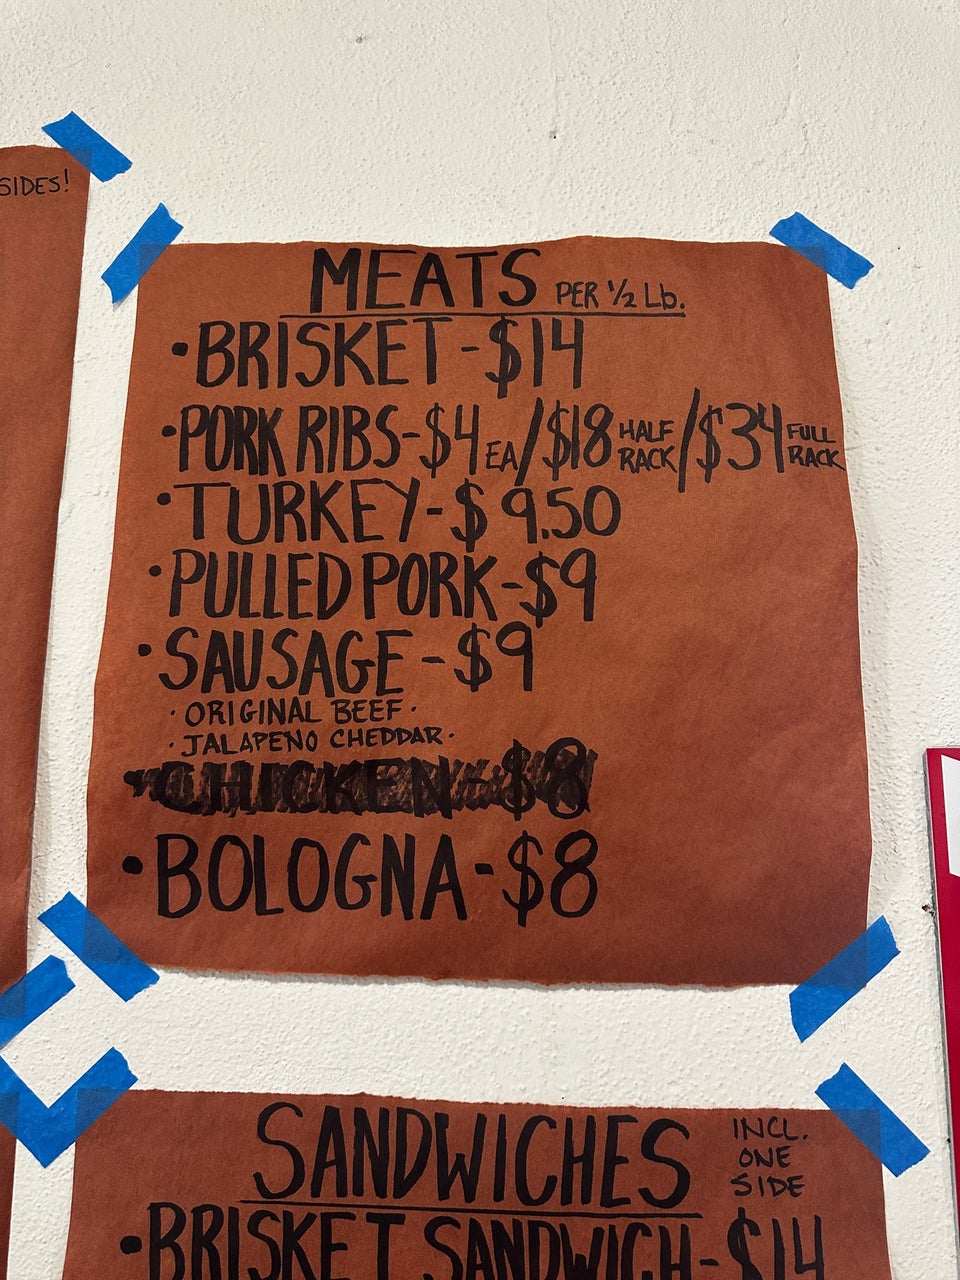 SIDES!
MEATS PER ½ Lb.
• BRISKET - $14
• PORK RIBS - $4 EA / $18 HALF RACK / $34 FULL RACK
• TURKEY - $9.50
• PULLED PORK - $9
• SAUSAGE - $9
· ORIGINAL BEEF ·
· JALAPENO CHEDDAR ·
• CHICKEN - $8
• BOLOGNA - $8
SANDWICHES INCL. ONE SIDE
• BRISKET SANDWICH - $14